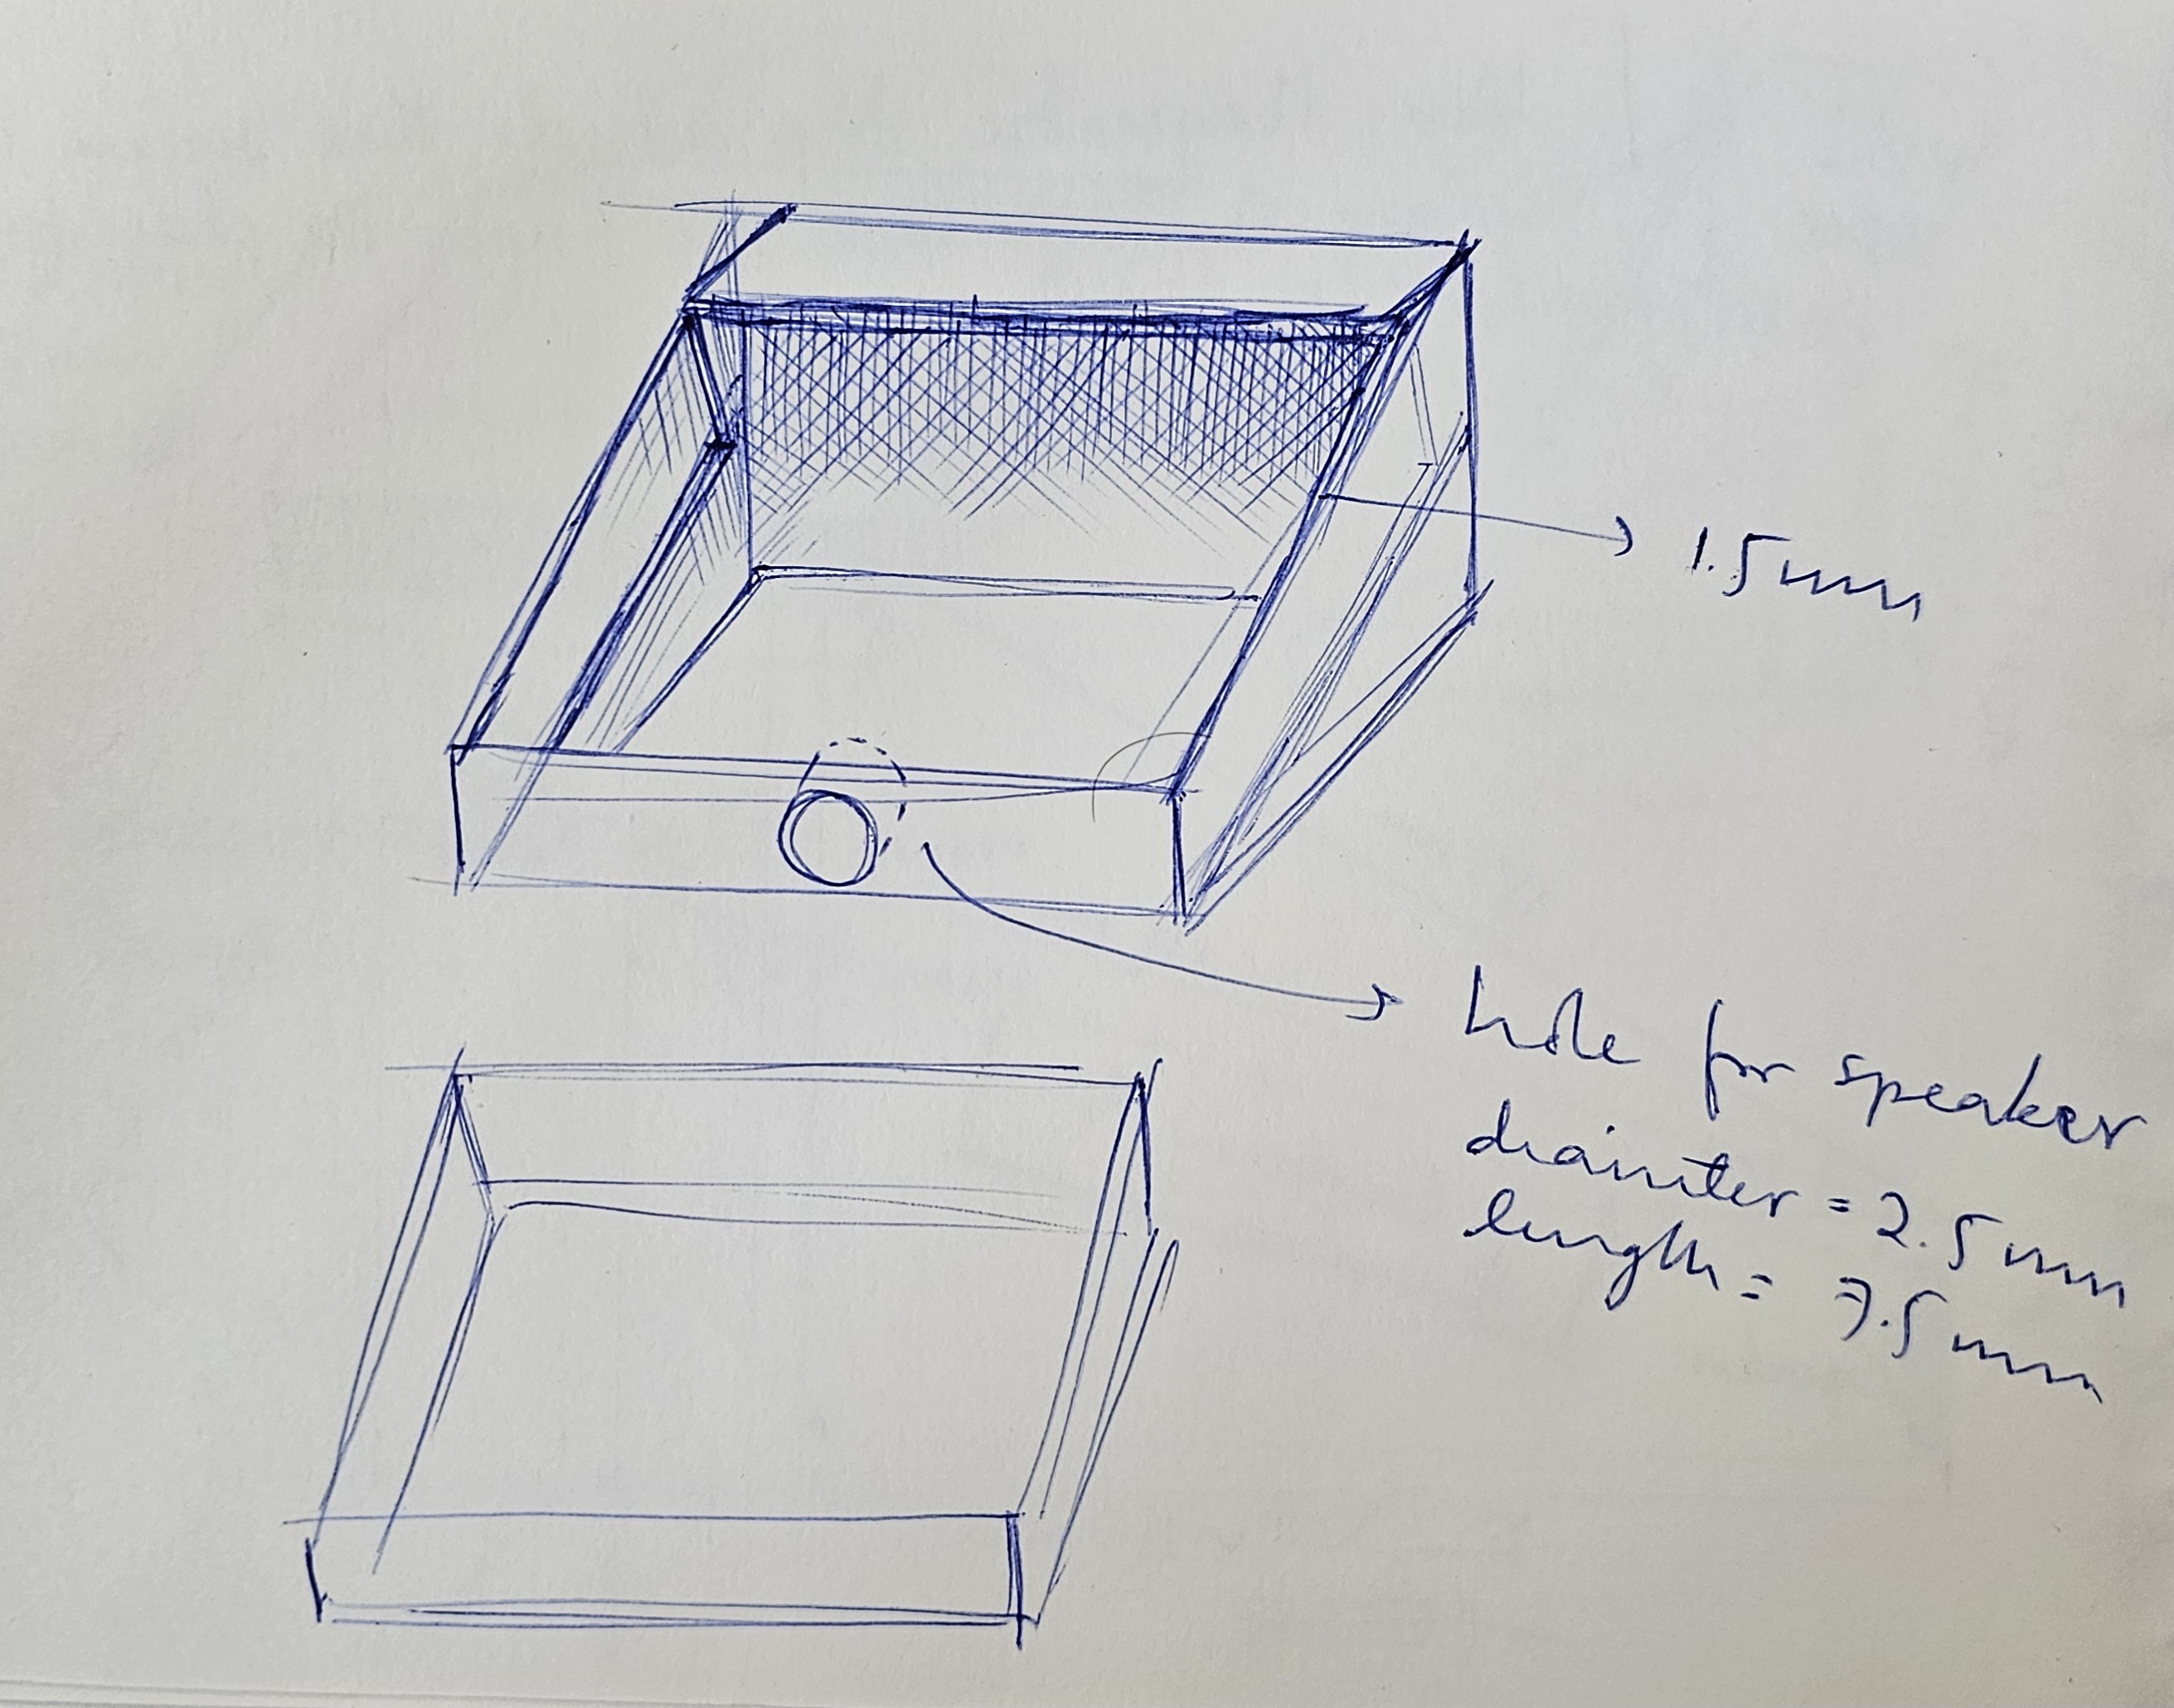 1.5mm
hole for speaker
diamter = 2.5mm
length = 7.5mm